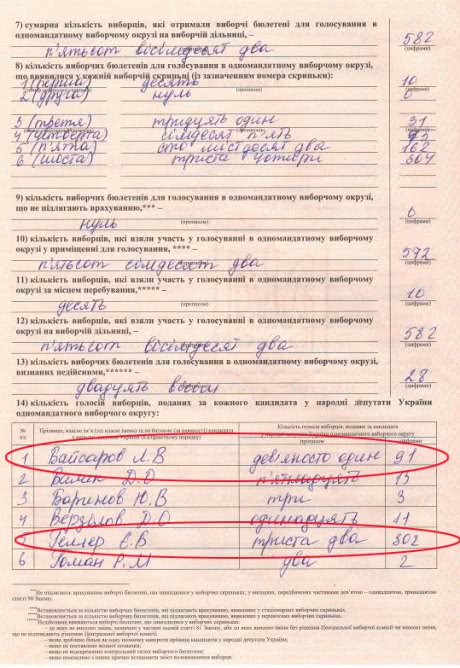 7) сумарна кількість виборців, які отримали виборчі бюлетені для голосування в
одномандатному виборчому окрузі на виборчій дільниці, –
п'ятьсот вісімдесят два 582
(цифрами)
8) кількість виборчих бюлетенів для голосування в одномандатному виборчому окрузі,
що виявилися у кожній виборчій скриньці (із зазначенням номера скриньки):
1 (перша) десять 10
2 (друга) нуль 0
3 (третя) тридцять один 31
4 (четверта) сімдесят п'ять 75
5 (п'ята) сто шістдесят два 162
6 (шоста) триста чотири 304
9) кількість виборчих бюлетенів для голосування в одномандатному виборчому окрузі,
що не підлягають врахуванню,*** –
нуль 0
(прописом) (цифрами)
10) кількість виборців, які взяли участь у голосуванні в одномандатному виборчому
окрузі у приміщенні для голосування, **** –
п'ятьсот сімдесят два 572
(цифрами)
11) кількість виборців, які взяли участь у голосуванні в одномандатному виборчому
окрузі за місцем перебування,***** –
десять 10
(прописом) (цифрами)
12) кількість виборців, які взяли участь у голосуванні в одномандатному виборчому
окрузі на виборчій дільниці, –
п'ятьсот вісімдесят два 582
(цифрами)
13) кількість виборчих бюлетенів для голосування в одномандатному виборчому окрузі,
визнаних недійсними,****** –
двадцять вісім 28
(цифрами)
14) кількість голосів виборців, поданих за кожного кандидата у народні депутати України
одномандатного виборчого округу:
№ Прізвище, власне ім'я (усі власні імена) та по батькові (за наявності) кандидата Кількість голосів виборців, поданих за кандидата
у народні депутати України одномандатного виборчого округу
прописом цифрами
1 Вайсаров Л.В дев'яносто один 91
2 Д.О п'ятнадцять 15
3 Баринов Ю.В три 3
4 Верзілов Д.О одинадцять 11
5 Геллер Є.В триста два 302
6 Гоман Р.М два 2